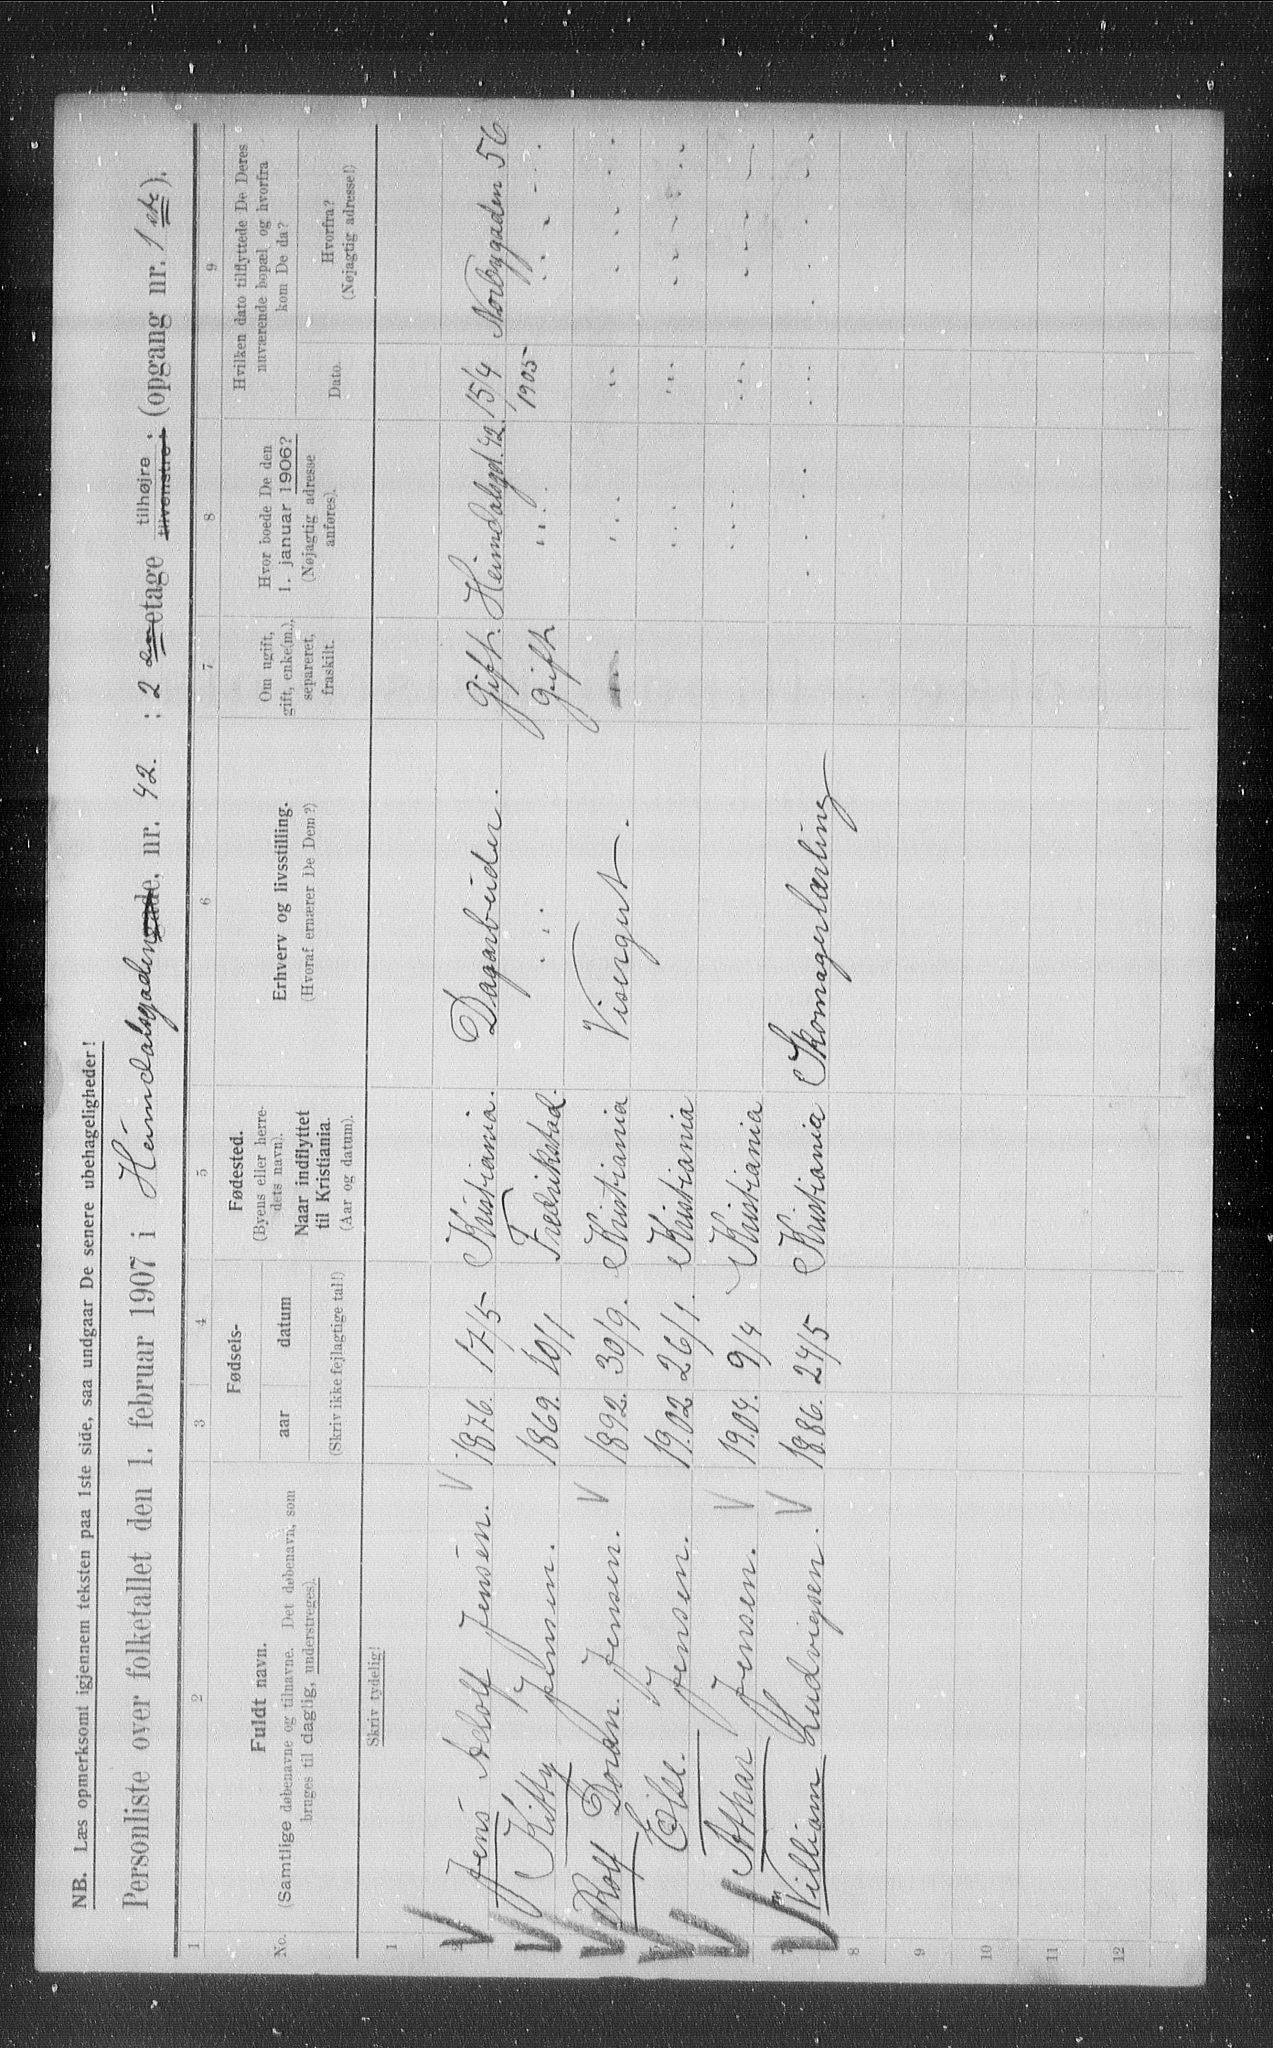 NB. Læs opmerksomt igjennem teksten paa 1ste side, saa undgaar De senere ubehageligheder!
Personliste over folketallet den 1. februar 1907 i Heimdalsgaden gade, nr. 42. : 2 den etage tilhøjre : tilvenstre : (opgang nr. 1 ste).
1 2 3 4 5 6 7 8 9
No.
Fuldt navn.
(Samtlige døbenavne og tilnavne. Det døbenavn, som
bruges til daglig, understreges).
Fødsels-
aar datum
(Skriv ikke fejlagtige tal!)
Fødested.
(Byens eller herre-
dets navn).
Naar indflyttet
til Kristiania.
(Aar og datum).
Erhverv og livsstilling.
(Hvoraf ernærer De Dem?)
Om ugift,
gift, enke(m.),
separeret,
fraskilt.
Hvor boede De den
1. januar 1906?
(Nøjagtig adresse
anføres).
Hvilken dato tilflyttede De Deres
nuværende bopæl og hvorfra
kom De da?
Dato.
Hvorfra?
(Nøjagtig adresse!)
Skriv tydelig!
1
2 Jens Adolf Jensen. V 1876. 17/5 Kristiania. Dagarbeider. Gift. Heimdalsgd. 42. 15/4 1905 Norbygaden 56
Kitty Jensen. 1869. 10/1 Fredrikstad. " Gift " " "
Rolf Jensen. V 1892. 30/9. Kristiania Visergut. " " "
Else. Jensen. 1902 26/1. Kristiania " " "
Jensen. V 1904. 9/4 Kristiania " " "
Villiam Ludvigsen. V 1886. 24/5 Kristiania Skomagerlærling " " "
8
9
10
11
12